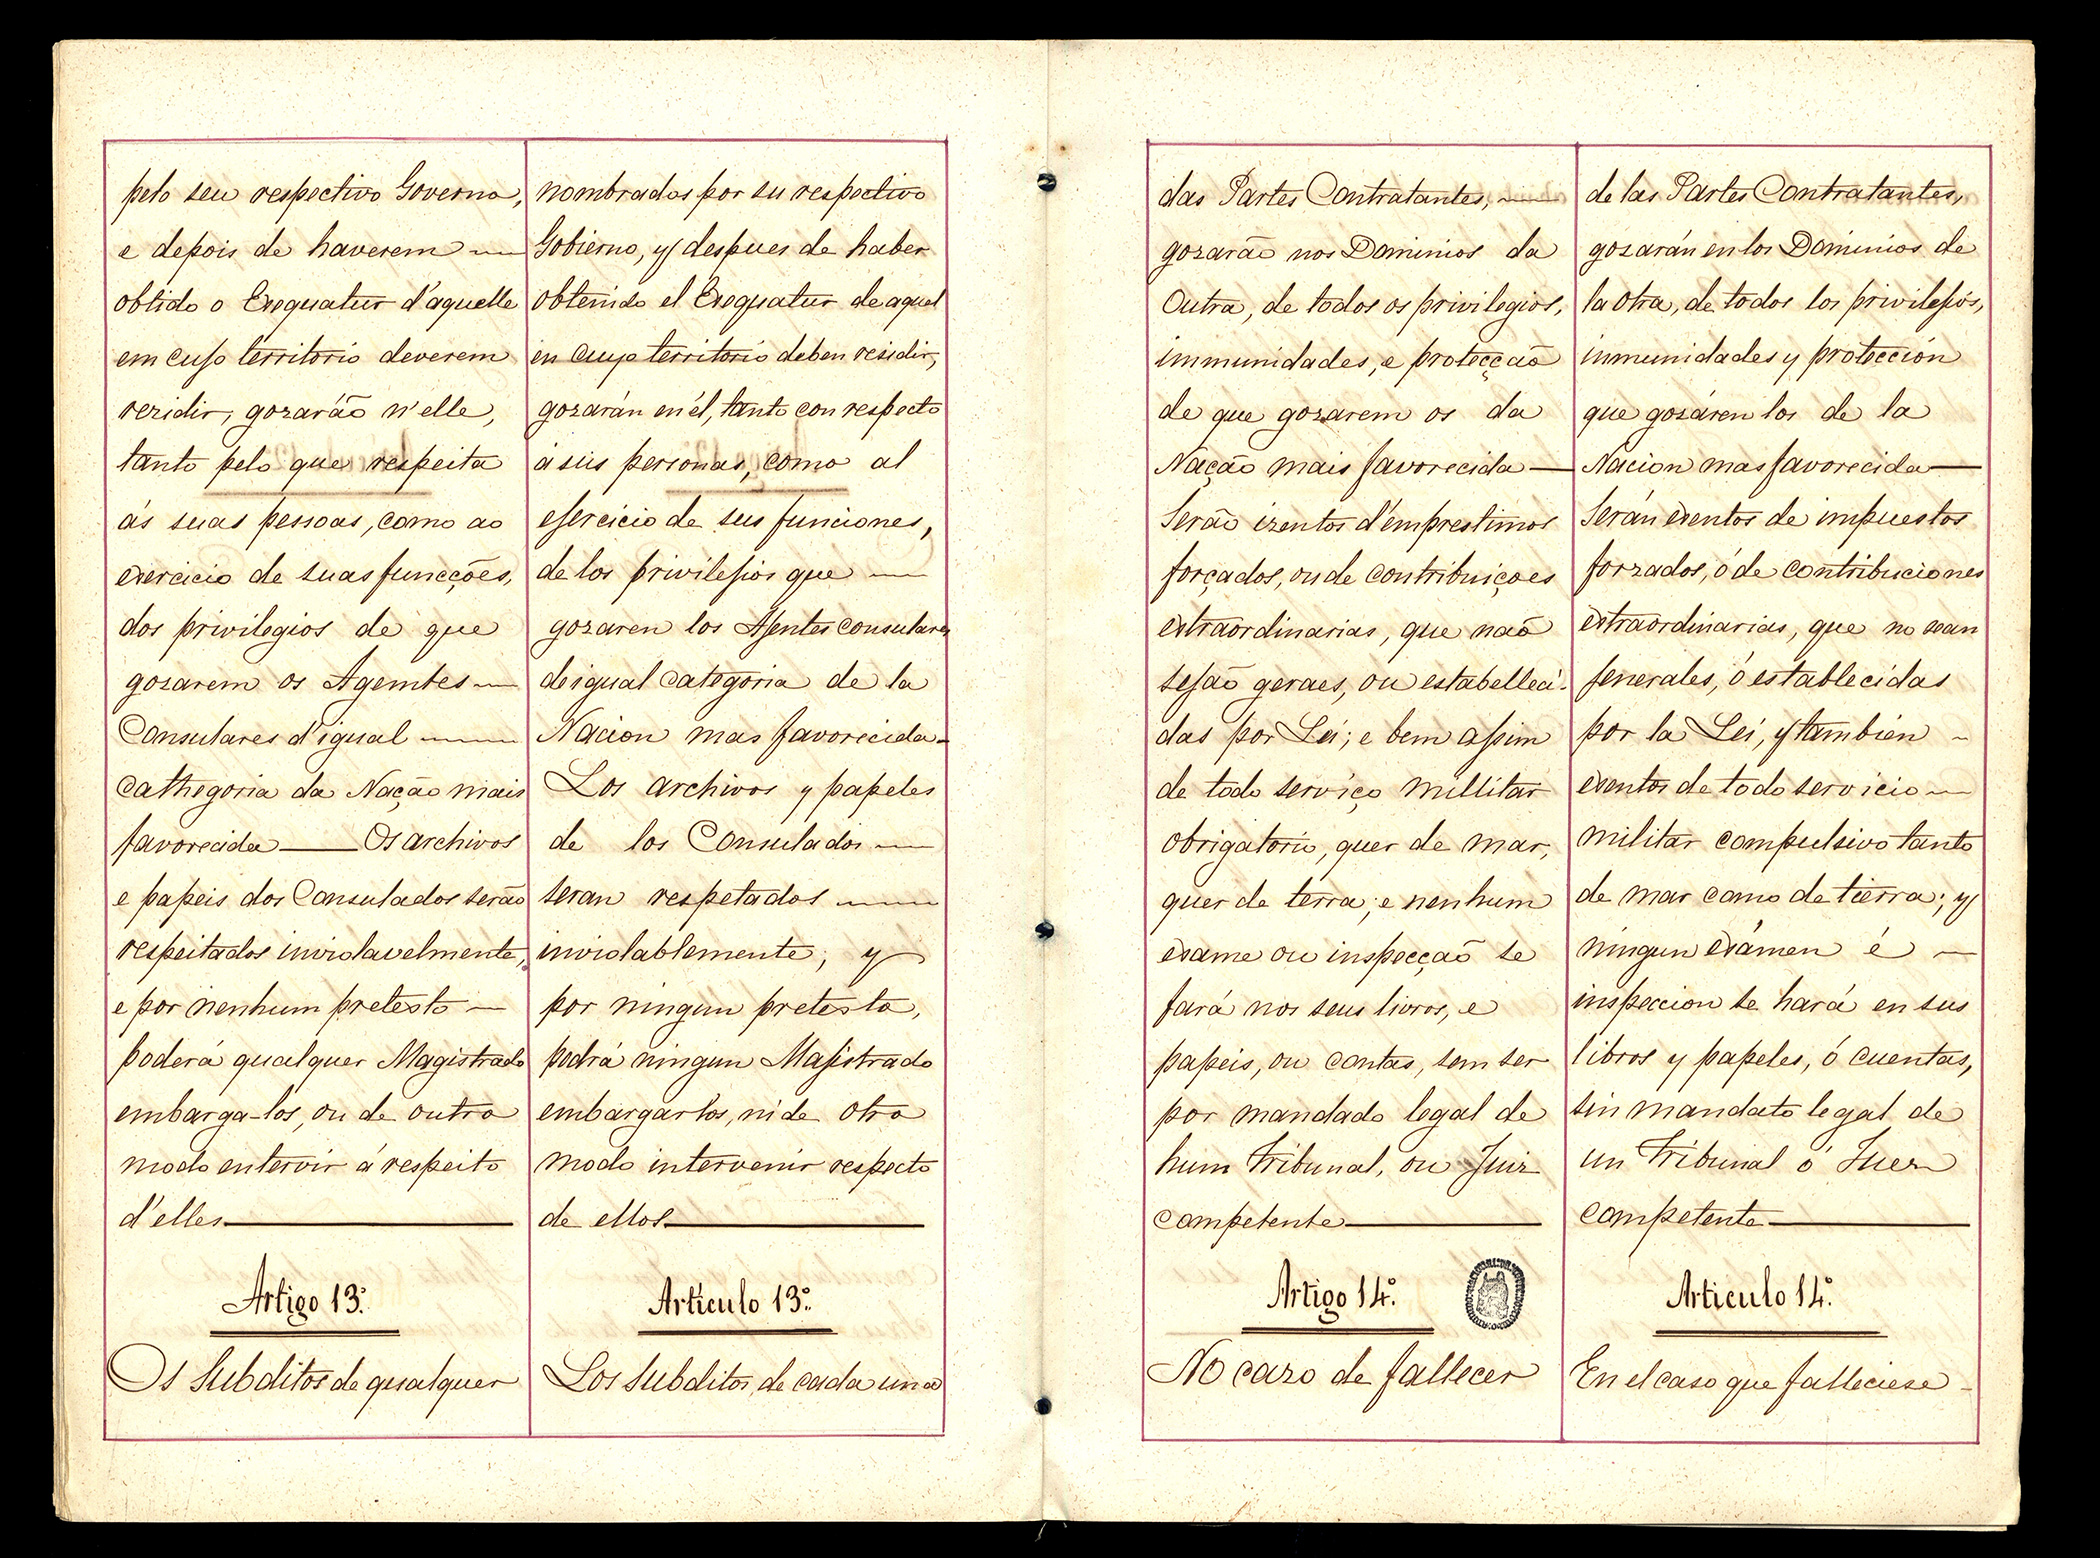 pelo seu respectivo Governo,
e depois de haverem
obtido o Exequatur d'aquelle
em cujo territorio deverem
rezidir, gozarão n'elle,
tanto pelo que respeita
ás suas pessoas, como ao
exercicio de suas funcções,
dos privilegios de que
gozarem os Agemtes
Consulares d'igual
cathegoria da Nação mais
favorecida — Os archivos
e papeis dos Consulados serão
respeitados inviolavelmente,
e por nenhum pretesto —
poderá qualquer Magistrado
embarga-los, ou de outro
modo entervir á respeito
d'elles —
Artigo 13.º
Os Subditos de qualquer
nombrados por su respectivo
Gobierno, y despues de haber
obtenido el Exequatur de aquel
en cuyo territorio deben residir,
gozarán en él, tanto con respecto
á sus personas, como al
ejercicio de sus funciones,
de los privilejios que —
gozaren los Ajentes consulares
de igual categoria de la
Nacion mas favorecida —
Los archivos y papeles
de los Consulados —
seran respetados —
inviolablemente; y
por ningun pretesto,
podrá ningun Majistrado
embargarlos, ni de otro
modo intervenir respecto
de ellos —
Articulo 13.º
Los Subditos de cada una
das Partes Contratantes, —
gozarão nos Dominios da
Outra, de todos os privilegios,
immunidades, e protecção
de que gozarem os da
Nação mais favorecida —
Serão izentos d'emprestimos
forçados, ou de contribuiçoes
extraordinarias, que naõ
sejaõ geraes, ou estabelleci-
das por Lei; e bem assim
de todo serviço millitar
obrigatorio, quer de mar,
quer de terra; e nenhum
exame ou inspecçaõ se
fará nos seus livros, e
papeis, ou contas, sem ser
por mandado legal de
hum Tribunal, ou Juiz
competente —
Artigo 14.º
No cazo de fallecer
de las Partes Contratantes,
gozarán en los Dominios de
la Otra, de todos los privilejios,
inmunidades y protección
que gozáren los de la
Nacion mas favorecida —
Serán exentos de impuestos
forzados, ó de contribuciones
extraordinarias, que no sean
jenerales, ó establecidas
por la Lei, y tambien —
exentos de todo servicio —
militar compulsivo tanto
de mar como de tierra; y
ningun exámen é —
inspeccion se hará en sus
libros y papeles, ó cuentas,
sin mandato legal de
un Tribunal ó Juez
competente —
Articulo 14.º
En el caso que falleciese —